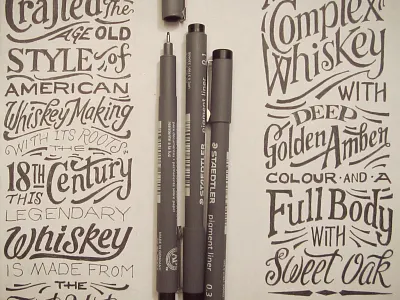 Crafted in The
AGE OLD
STYLE of
AMERICAN
Whiskey Making
WITH ITS ROOTS
IN THE
18TH Century
THIS
LEGENDARY
Whiskey
IS MADE FROM
THE
Complex
Whiskey
WITH
DEEP
Golden Amber
COLOUR AND A
Full Body
WITH
Sweet Oak
STAEDTLER
pigment liner
0.3
STAEDTLER
pigment liner
0.1